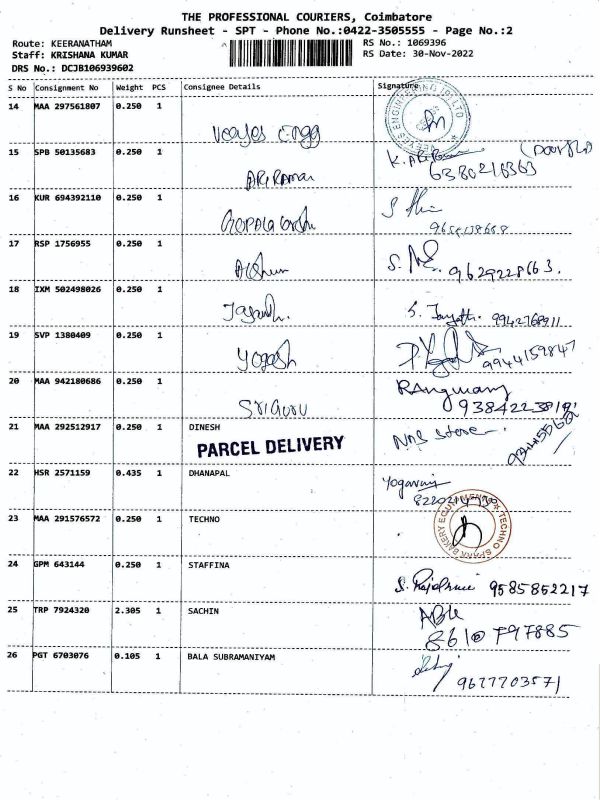 THE PROFESSIONAL COURIERS, Coimbatore
Delivery Runsheet - SPT - Phone No.:0422-3505555 - Page No.:2
Route: KEERANATHAM RS No.: 1069396
Staff: KRISHANA KUMAR RS Date: 30-Nov-2022
DRS No.: DCJB106939602
S No Consignment No Weight PCS Consignee Details Signature
14 MAA 297561807 0.250 1
15 SPB 50135683 0.250 1
ARI RAMAN K.
6380210363
16 KUR 694392110 0.250 1
17 RSP 1756955 0.250 1
S.
9629228663.
18 IXM 502498026 0.250 1
Jayanth. S. 9942768911
19 SVP 1380409 0.250 1
Yogesh 9944159847
20 MAA 942180686 0.250 1
SRIGURU
21 MAA 292512917 0.250 1 DINESH
PARCEL DELIVERY Store
22 HSR 2571159 0.435 1 DHANAPAL
23 MAA 291576572 0.250 1 TECHNO
TECHNO BAKERY EQUIPMENTS
24 GPM 643144 0.250 1 STAFFINA
S. 9585852217
25 TRP 7924320 2.305 1 SACHIN
8610797885
26 PGT 6703076 0.105 1 BALA SUBRAMANIYAM
9677703571